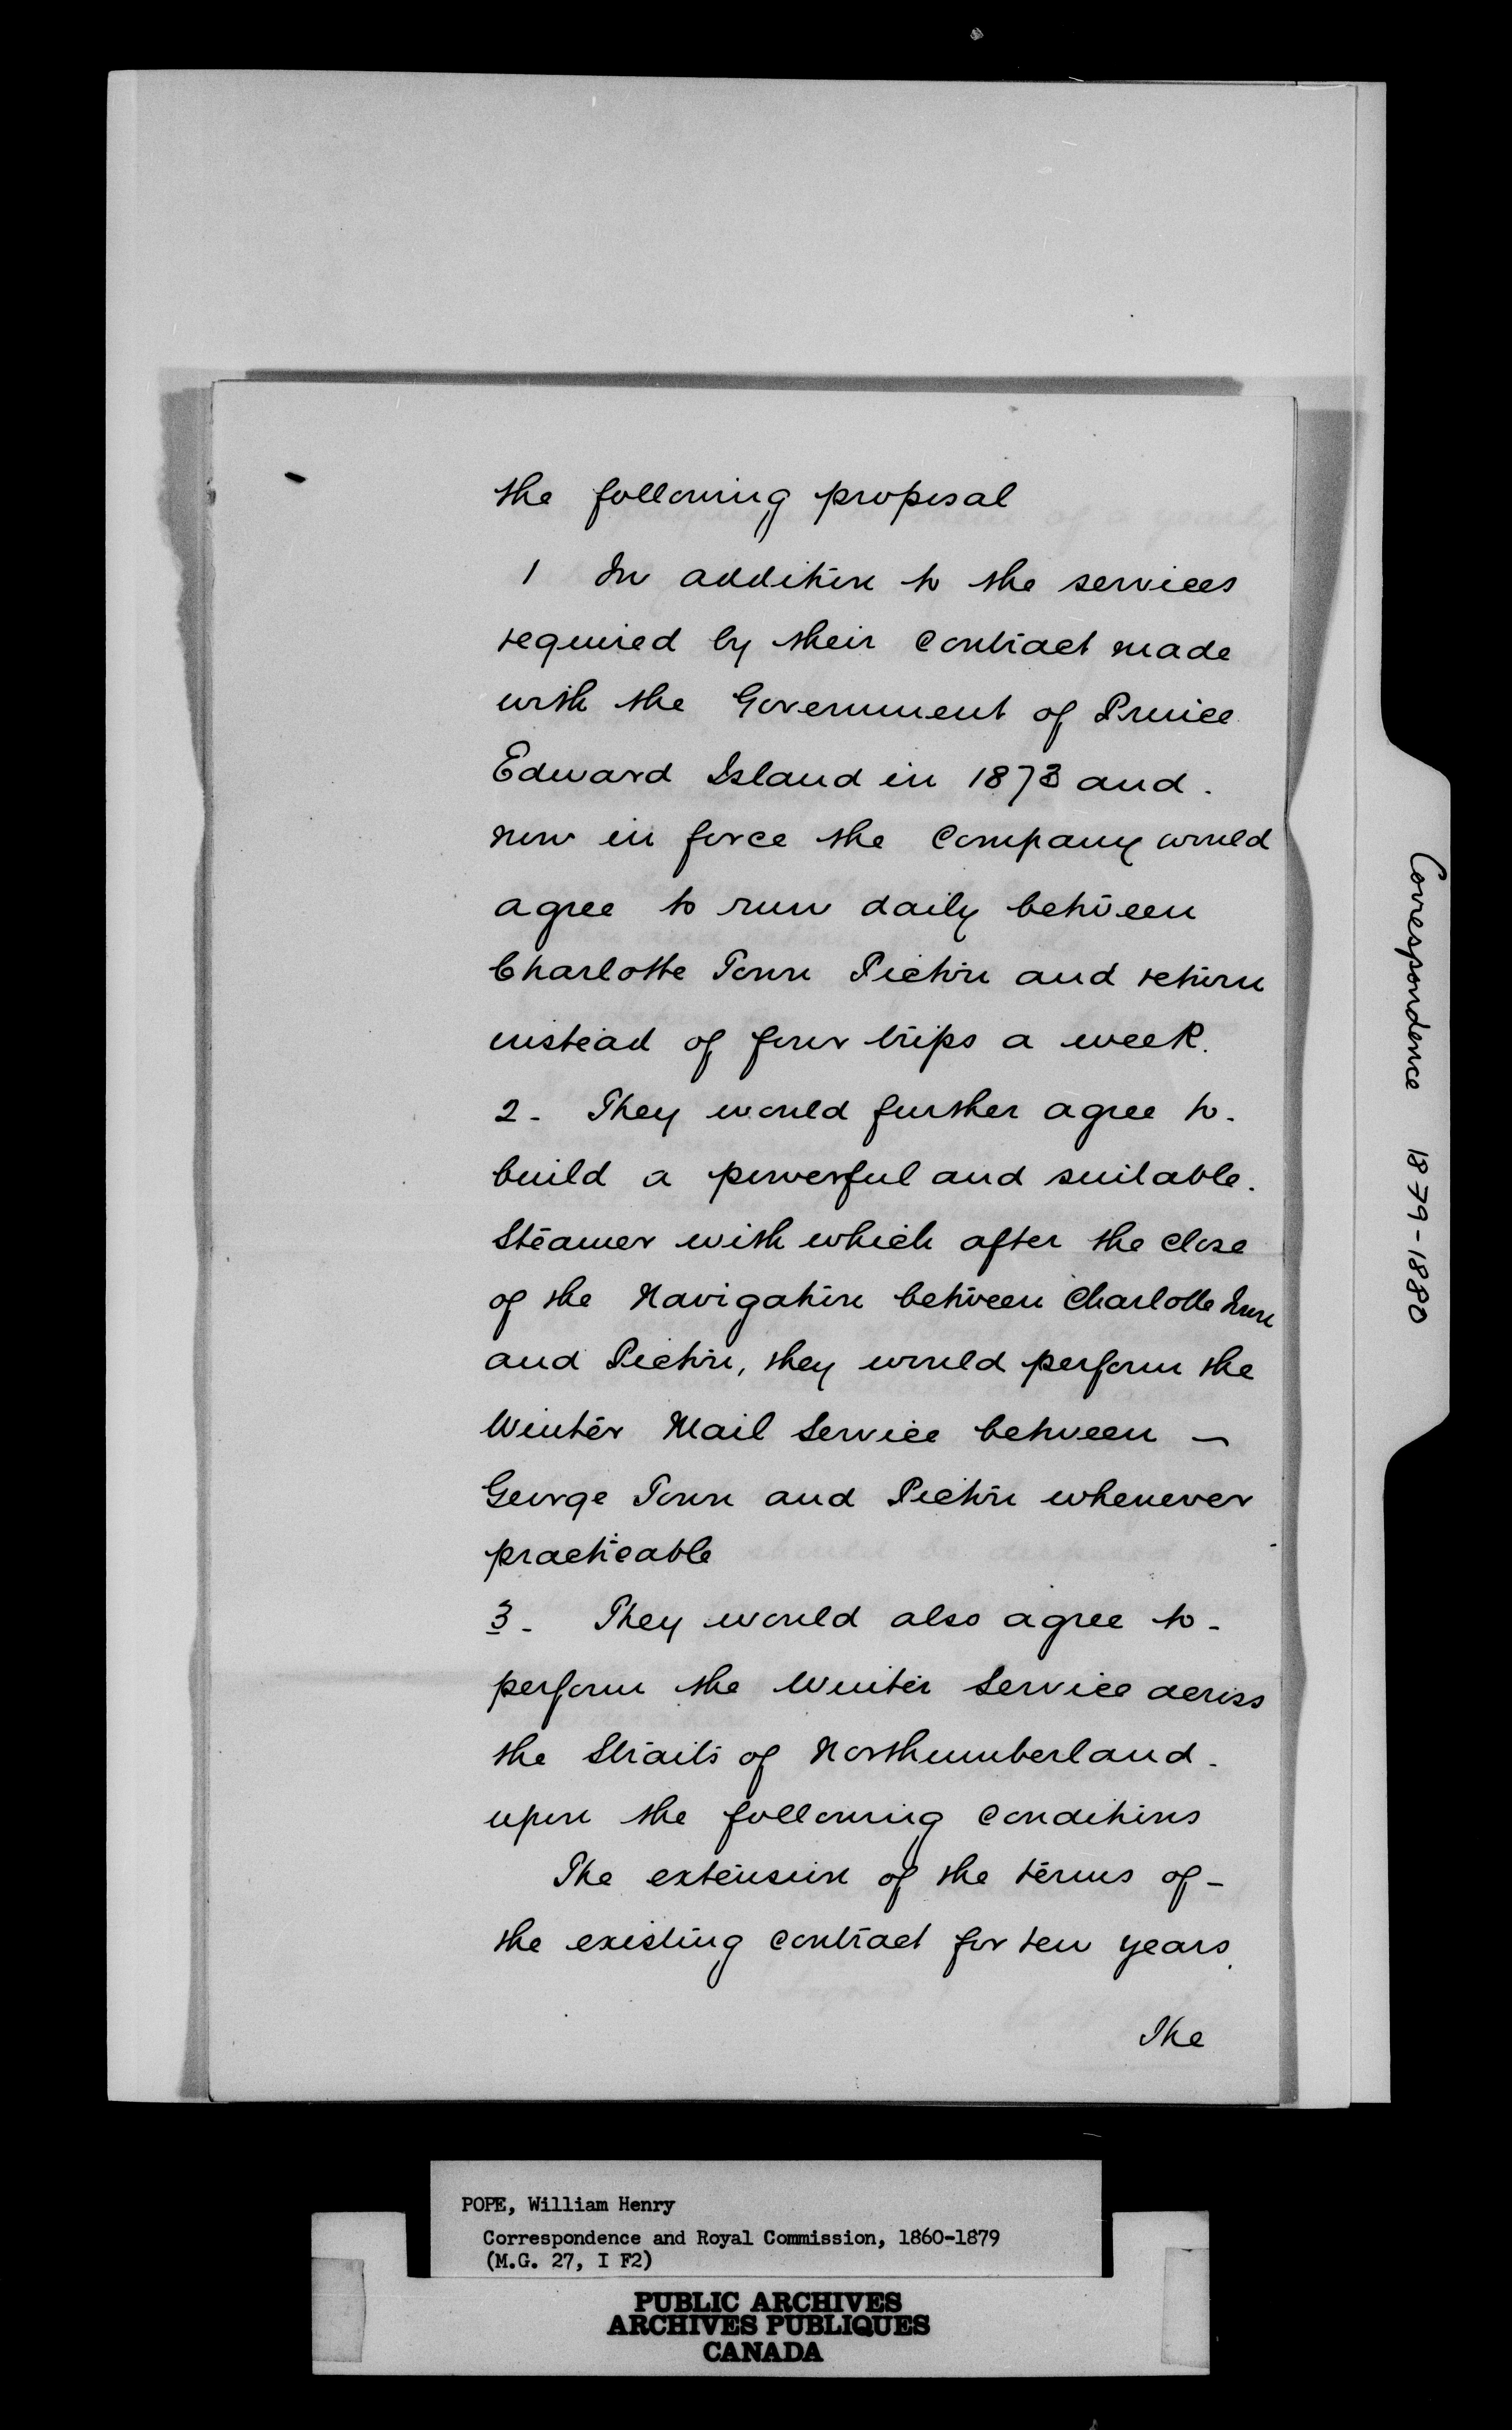 the following proposal
1 In addition to the services
required by their contract made
with the Government of Prince
Edward Island in 1873 and.
now in force the Company would
agree to run daily between
Charlotte Town Pictou and return
instead of four trips a week.
2 - They would further agree to -
build a powerful and suitable.
Steamer with which after the close
of the Navigation between Charlotte Town
and Pictou, they would perform the
Winter Mail Service between —
George Town and Pictou whenever
practicable
3 - They would also agree to -
perform the Winter Service across
the Straits of Northumberland -
upon the following conditions
The extension of the terms of -
the existing contract for ten years.
The
Correspondence 1879-1880
POPE, William Henry
Correspondence and Royal Commission, 1860-1879
(M.G. 27, I F2)
PUBLIC ARCHIVES
ARCHIVES PUBLIQUES
CANADA